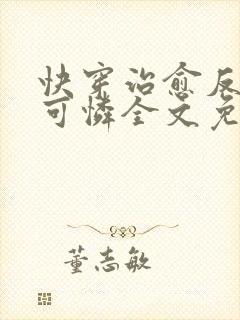 快穿治愈反
可憐全文免
董志敏